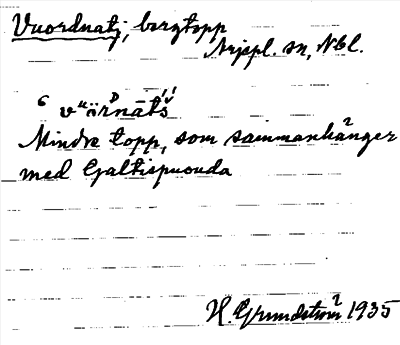 Vuordnatj, bergtopp
Arjepl. sn, Nbl.
Mindre topp, som sammanhänger
med Galtispuouda
H. Grundström 1935